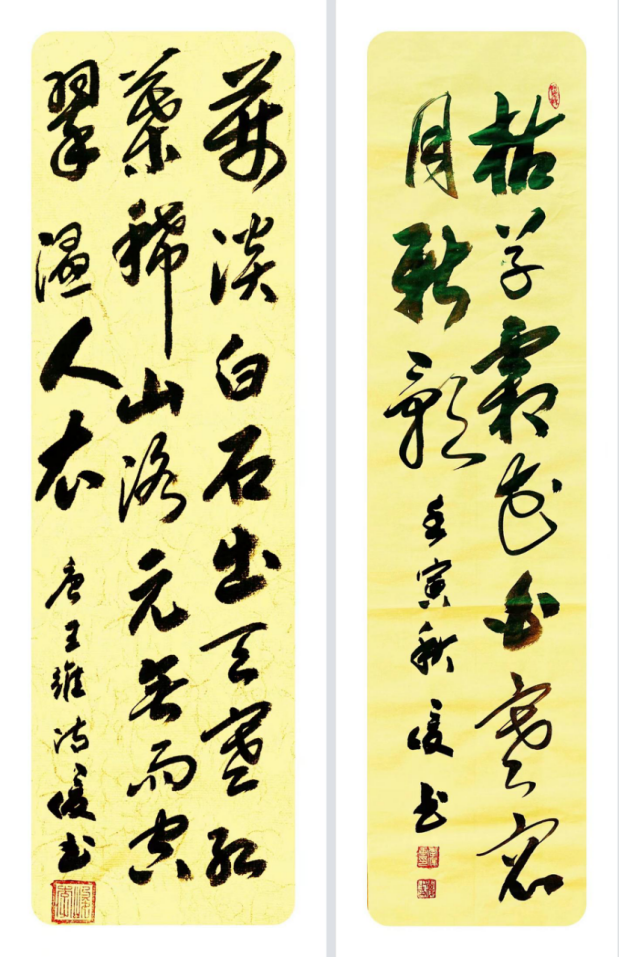 荆溪白石出天寒红
葉稀山路元無雨空
翠濕人衣 唐王維詩 书
枯草霜花白寒窗
月新影 壬寅秋 书